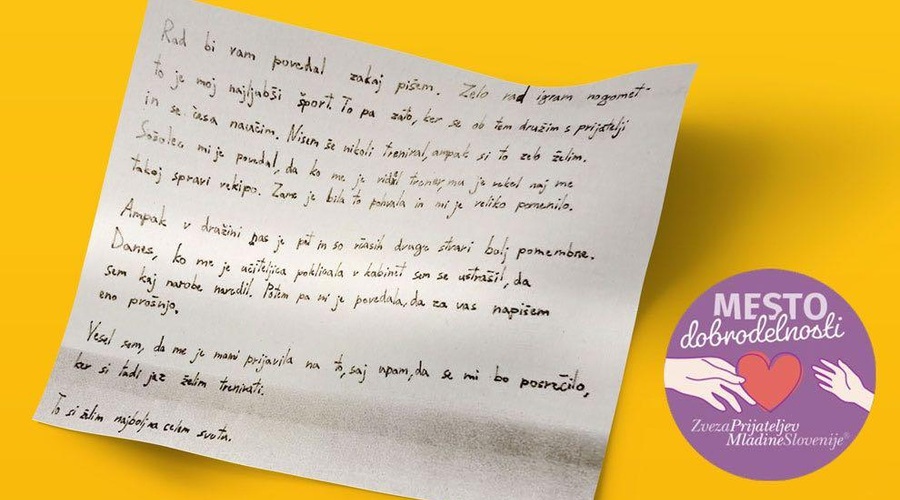 Rad bi vam povedal zakaj pišem. Zelo rad igram nogomet-
to je moj najljubši šport. To pa zato, ker se ob tem družim s prijatelji
in se česa naučim. Nisem še nikoli treniral, ampak si to zelo želim.
Sošolec mi je povedal, da ko me je videl trener, mu je rekel naj me
takoj spravi v ekipo. Zame je bila to pohvala in mi je veliko pomenilo.
Ampak v družini nas je pet in so včasih druge stvari bolj pomembne.
Danes, ko me je učiteljica poklicala v kabinet sem se ustrašil, da
sem kaj narobe naredil. Potem pa mi je povedala, da za vas napišem
eno prošnjo.
Vesel sem, da me je mami prijavila na to, saj upam, da se mi bo posrečilo,
ker si tudi jaz želim trenirati.
To si želim najbolj na celem svetu.
MESTO
dobrodelnosti
Zveza Prijateljev
Mladine Slovenije®